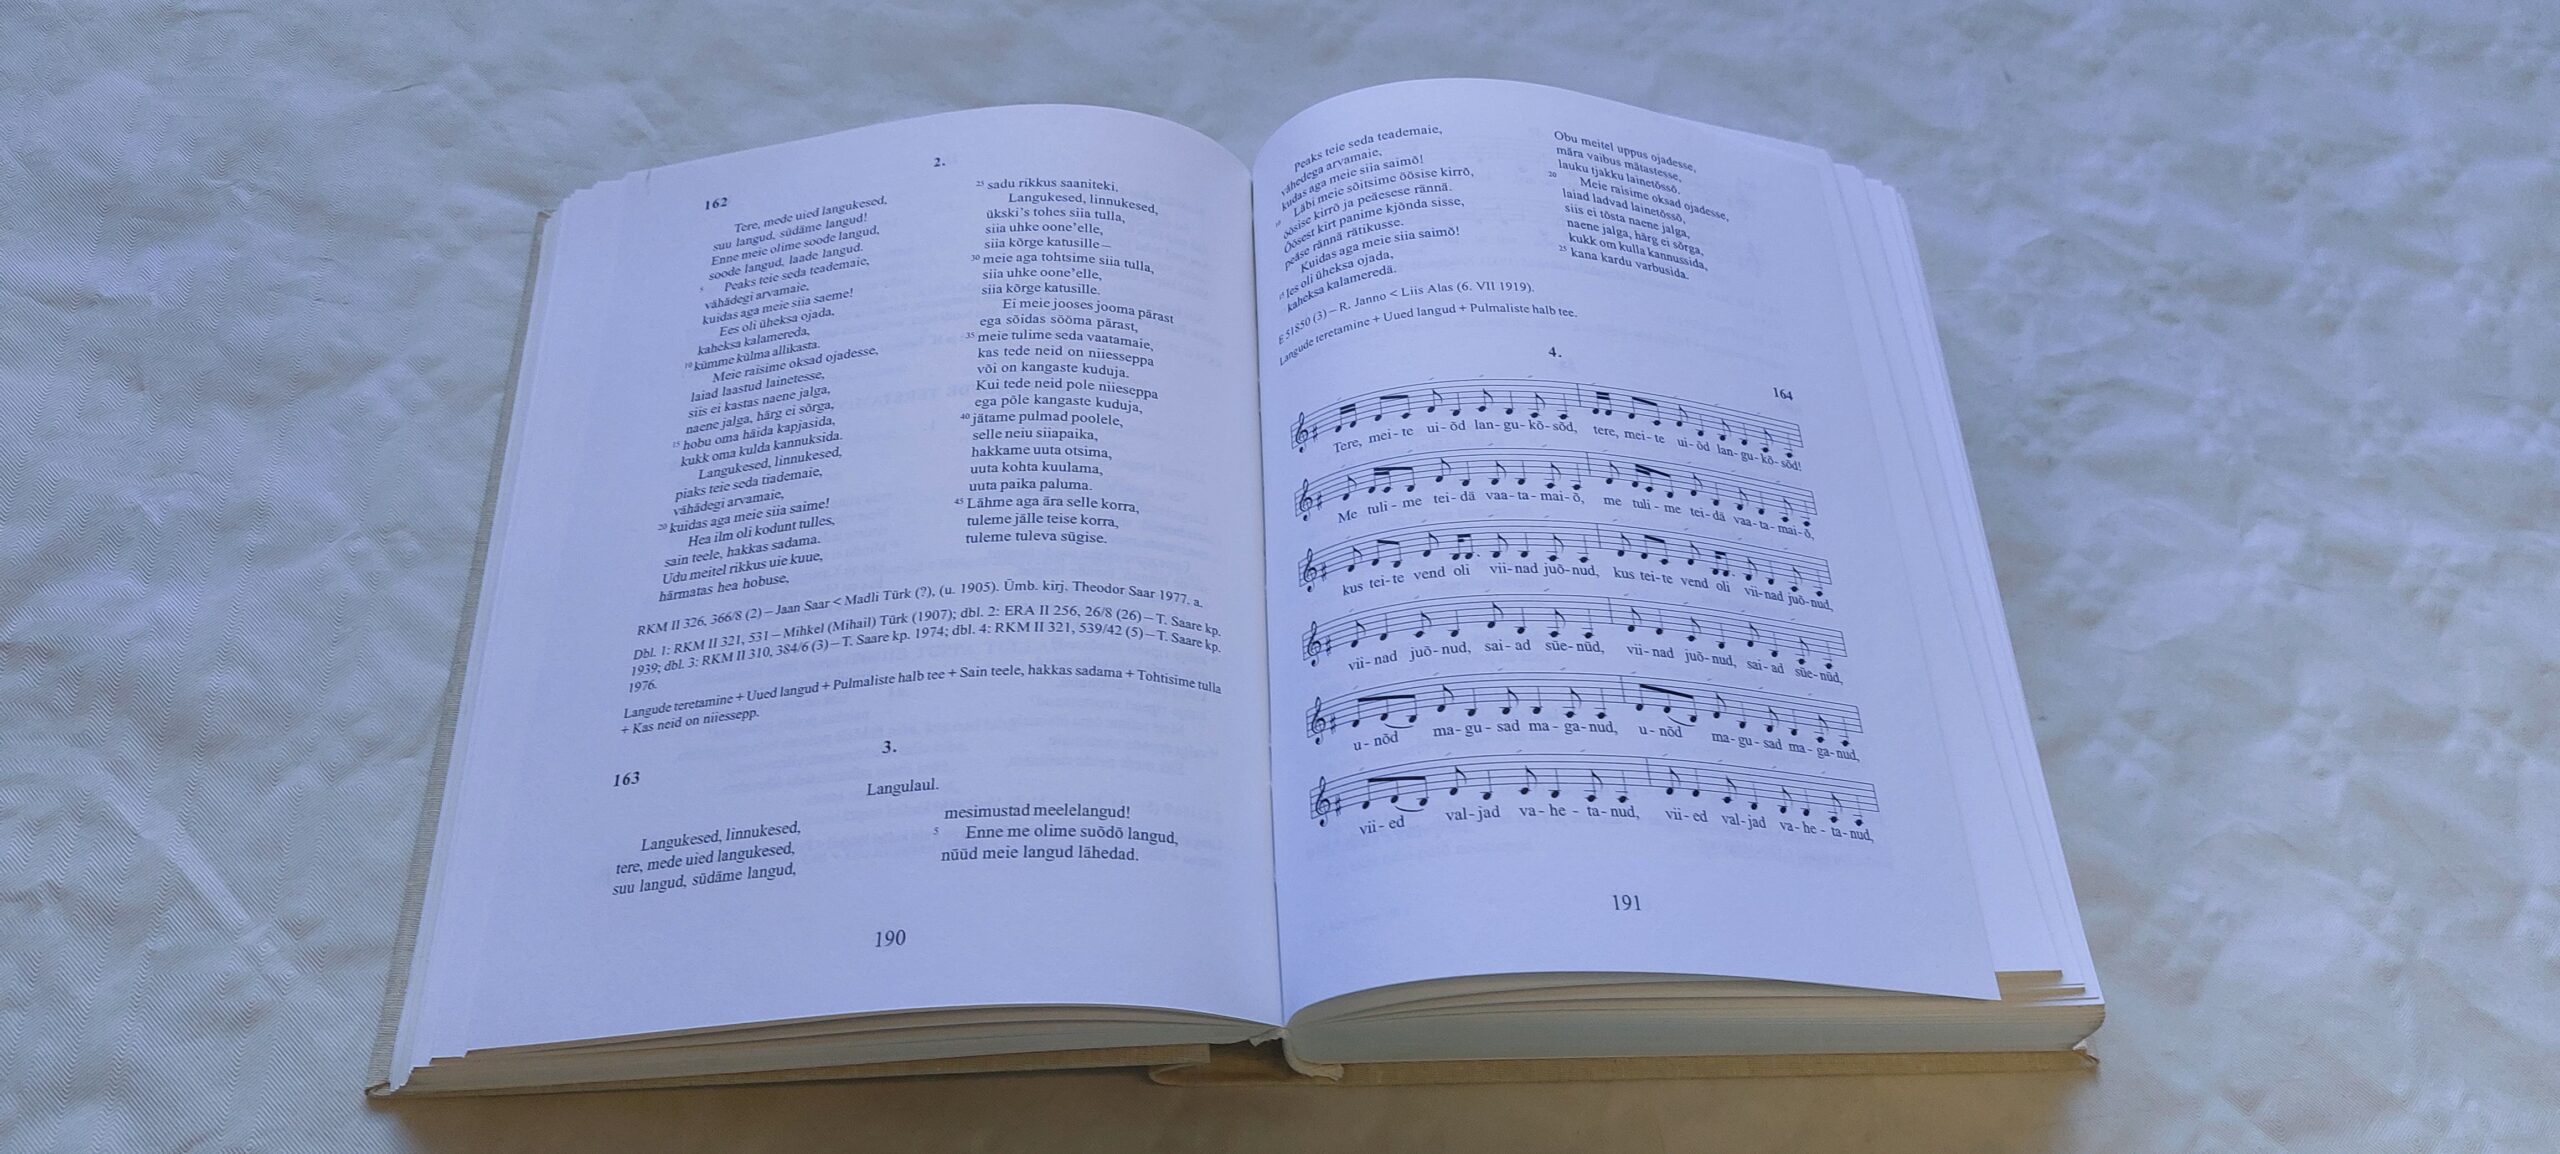 2.
162
Tere, mede uied langukesed,
suu langud, südäme langud!
Enne meie olime soode langud,
soode langud, laade langud.
5 Peaks teie seda teademaie,
vähädegi arvamaie,
kuidas aga meie siia saeme!
Ees oli üheksa ojada,
kaheksa kalamereda,
10 kümme külma allikasta.
Meie raisime oksad ojadesse,
laiad laastud lainetesse,
siis ei kastas naene jalga,
naene jalga, härg ei sõrga,
15 hobu oma häida kapjasida,
kukk oma kulda kannuksida.
Langukesed, linnukesed,
piaks teie seda tiademaie,
vähädegi arvamaie,
20 kuidas aga meie siia saime!
Hea ilm oli kodunt tulles,
sain teele, hakkas sadama.
Udu meitel rikkus uie kuue,
härmatas hea hobuse,
25 sadu rikkus saaniteki.
Langukesed, linnukesed,
ükski's tohes siia tulla,
siia uhke oone'elle,
siia kõrge katusille—
30 meie aga tohtsime siia tulla,
siia uhke oone'elle,
siia kõrge katusille.
Ei meie jooses jooma pärast
ega sõidas sööma pärast,
35 meie tulime seda vaatamaie,
kas tede neid on niiesseppa
või on kangaste kuduja.
Kui tede neid pole niieseppa
ega põle kangaste kuduja,
40 jätame pulmad poolele,
selle neiu siiapaika,
hakkame uuta otsima,
uuta kohta kuulama,
uuta paika paluma.
45 Lähme aga ära selle korra,
tuleme jälle teise korra,
tuleme tuleva sügise.
RKM II 326, 366/8 (2) – Jaan Saar < Madli Türk (?), (u. 1905). Ümb. kirj. Theodor Saar 1977. a.
Dbl. 1: RKM II 321, 531 – Mihkel (Mihail) Türk (1907); dbl. 2: ERA II 256, 26/8 (26) – T. Saare kp.
1939; dbl. 3: RKM II 310, 384/6 (3) – T. Saare kp. 1974; dbl. 4: RKM II 321, 539/42 (5) – T. Saare kp.
1976.
Langude teretamine + Uued langud + Pulmaliste halb tee + Sain teele, hakkas sadama + Tohtisime tulla
+ Kas neid on niiessepp.
3.
163
Langulaul.
Langukesed, linnukesed,
tere, mede uied langukesed,
suu langud, südäme langud,
mesimustad meelelangud!
5 Enne me olime suõdõ langud,
nüüd meie langud lähedad.
190
Peaks teie seda teademaie,
vähedega arvamaie,
kudas aga meie siia saimõ!
10 Läbi meie sõitsime öösise kirrõ,
öösise kirrõ ja peäesese rännä.
Öösest kirt panime kjõnda sisse,
peäse rännä rätikusse.
Kuidas aga meie siia saimõ!
15 Ies oli üheksa ojada,
kaheksa kalameredä.
Obu meitel uppus ojadesse,
mära vaibus mätastesse,
lauku tjakku lainetõssõ.
20 Meie raisime oksad ojadesse,
laiad ladvad lainetõssõ,
siis ei tõsta naene jalga,
naene jalga, härg ei sõrga,
kukk om kulla kannussida,
25 kana kardu varbusida.
E 51850 (3) – R. Janno < Liis Alas (6. VII 1919).
Langude teretamine + Uued langud + Pulmaliste halb tee.
4.
164
Tere, mei-te ui-õd lan-gu-kõ-sõd, tere, mei-te ui-õd lan-gu-kõ-sõd!
Me tuli-me tei-dä vaa-ta-mai-õ, me tuli-me tei-dä vaa-ta-mai-õ,
kus tei-te vend oli vii-nad juõ-nud, kus tei-te vend oli vii-nad juõ-nud,
vii-nad juõ-nud, sai-ad süe-nüd, vii-nad juõ-nud, sai-ad süe-nüd,
u-nõd ma-gu-sad ma-ga-nud, u-nõd ma-gu-sad ma-ga-nud,
vii-ed val-jad va-he-ta-nud, vii-ed val-jad va-he-ta-nud,
191